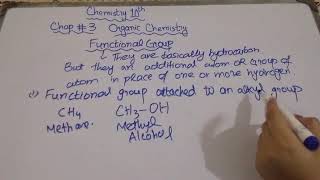 Chemistry 10th
Chap #3 Organic Chemistry
Functional Group
↳ They are basically hydrocarbon
But they are additional atom OR group of
atom in place of one or more hydrogen
i) Functional group attached to an alkyl group
CH4 CH3-OH
Methane. Methyl
Alcohol